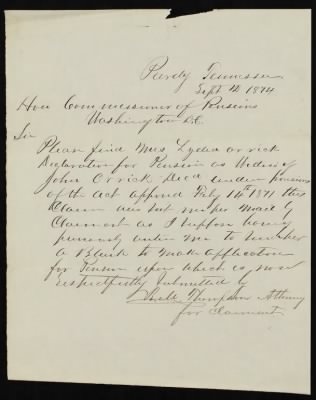 Purdy Tennessee
Sept 10 1874
Hon Commessioner of Pensions
Washington D.C.
Sir
Please find Mrs Lydia Orrick
Declaration for Pension as Widow of
John Orrick Decd under provisions
of the act approvd Feby 14th 1871 this
Claim was but
Claimant as I suppose having
me to
a Blank to make application
for Pension upon which is now
respectfully submitted by
Thompson Attorney
for Claimant